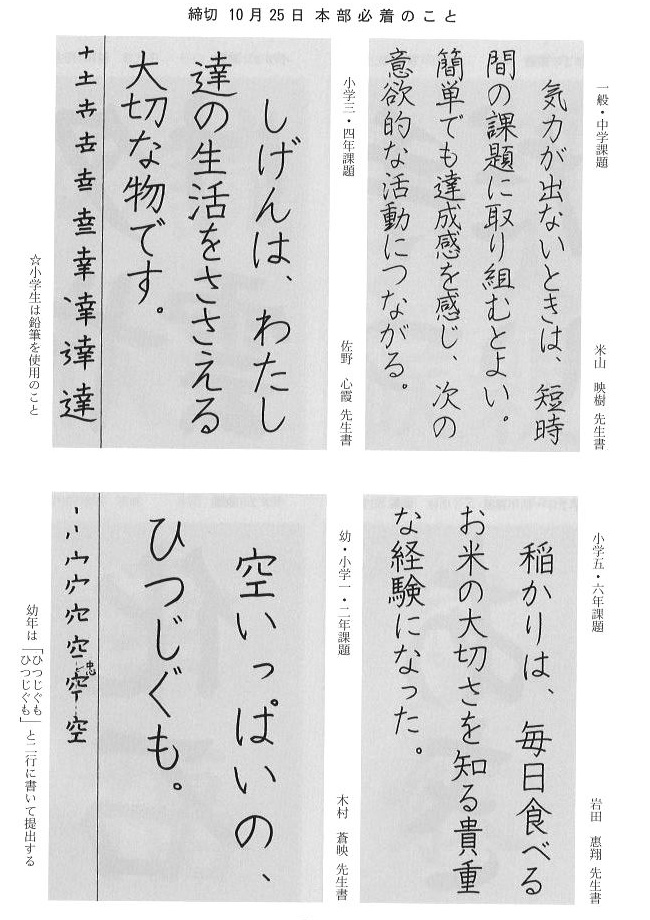 締切 10月25日 本部必着のこと
一般・中学課題
米山 映樹 先生書
気力が出ないときは、短時
間の課題に取り組むとよい。
簡単でも達成感を感じ、次の
意欲的な活動につながる。
小学三・四年課題
佐野 心霞 先生書
しげんは、わたし
達の生活をささえる
大切な物です。
達
☆小学生は鉛筆を使用のこと
小学五・六年課題
岩田 恵翔 先生書
稲かりは、毎日食べる
お米の大切さを知る貴重
な経験になった。
幼・小学一・二年課題
木村 蒼映 先生書
空いっぱいの、
ひつじぐも。
空
幼年は「ひつじぐも
ひつじぐも」と二行に書いて提出する